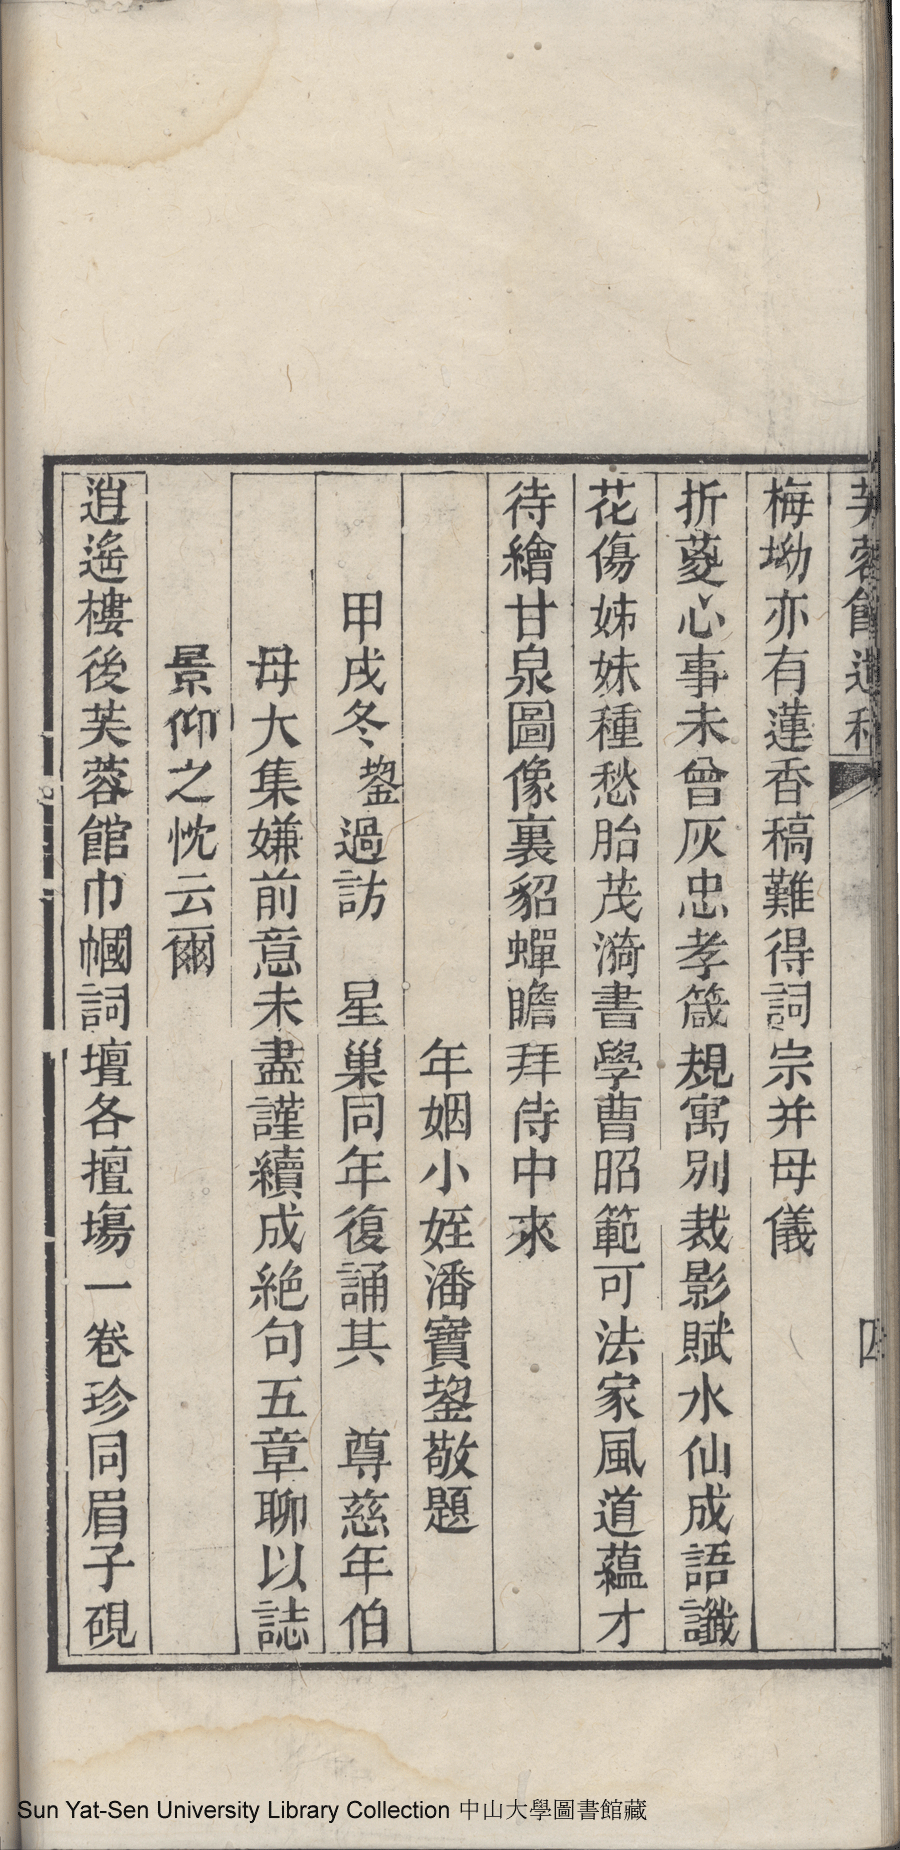 芙蓉館遺稿
四
梅坳亦有蓮香稿難得詞宗并母儀
折菱心事未曾灰忠孝箴規寓別裁影賦水仙成語讖
花傷姊妹種愁胎茂漪書學曹昭範可法家風道蘊才
待繪甘泉圖像裏貂蟬瞻拜侍中來
年姻小姪潘寶鋆敬題
甲戌冬鋆過訪 星巢同年復誦其 尊慈年伯
母大集嫌前意未盡謹續成絕句五章聊以誌
景仰之忱云爾
逍遙樓後芙蓉館巾幗詞壇各擅塲一卷珍同眉子硯
Sun Yat-Sen University Library Collection 中山大學圖書館藏